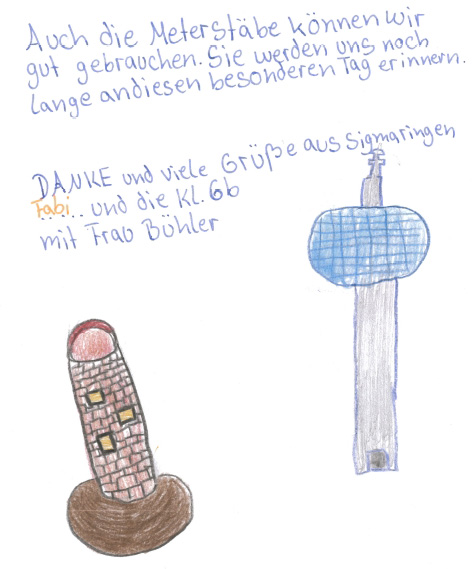 Auch die Meterstäbe können wir
gut gebrauchen. Sie werden uns noch
lange andiesen besonderen Tag erinnern.
DANKE und viele Grüße aus Sigmaringen
Fabi... und die Kl. 6b
mit Frau Bühler